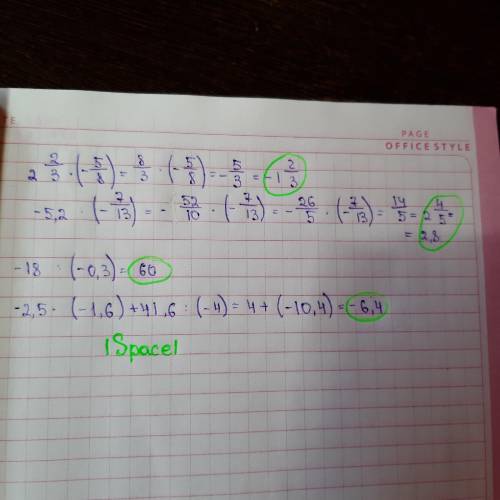 PAGE
OFFICE STYLE
2 2/3 · (-5/8) = 8/3 · (-5/8) = -5/3 = -1 2/3
-5,2 · (-7/13) = -52/10 · (-7/13) = -26/5 · (-7/13) = 14/5 = 2 4/5 =
= 2,8
-18 : (-0,3) = 60
-2,5 · (-1,6) + 41,6 : (-4) = 4 + (-10,4) = -6,4
|Space|